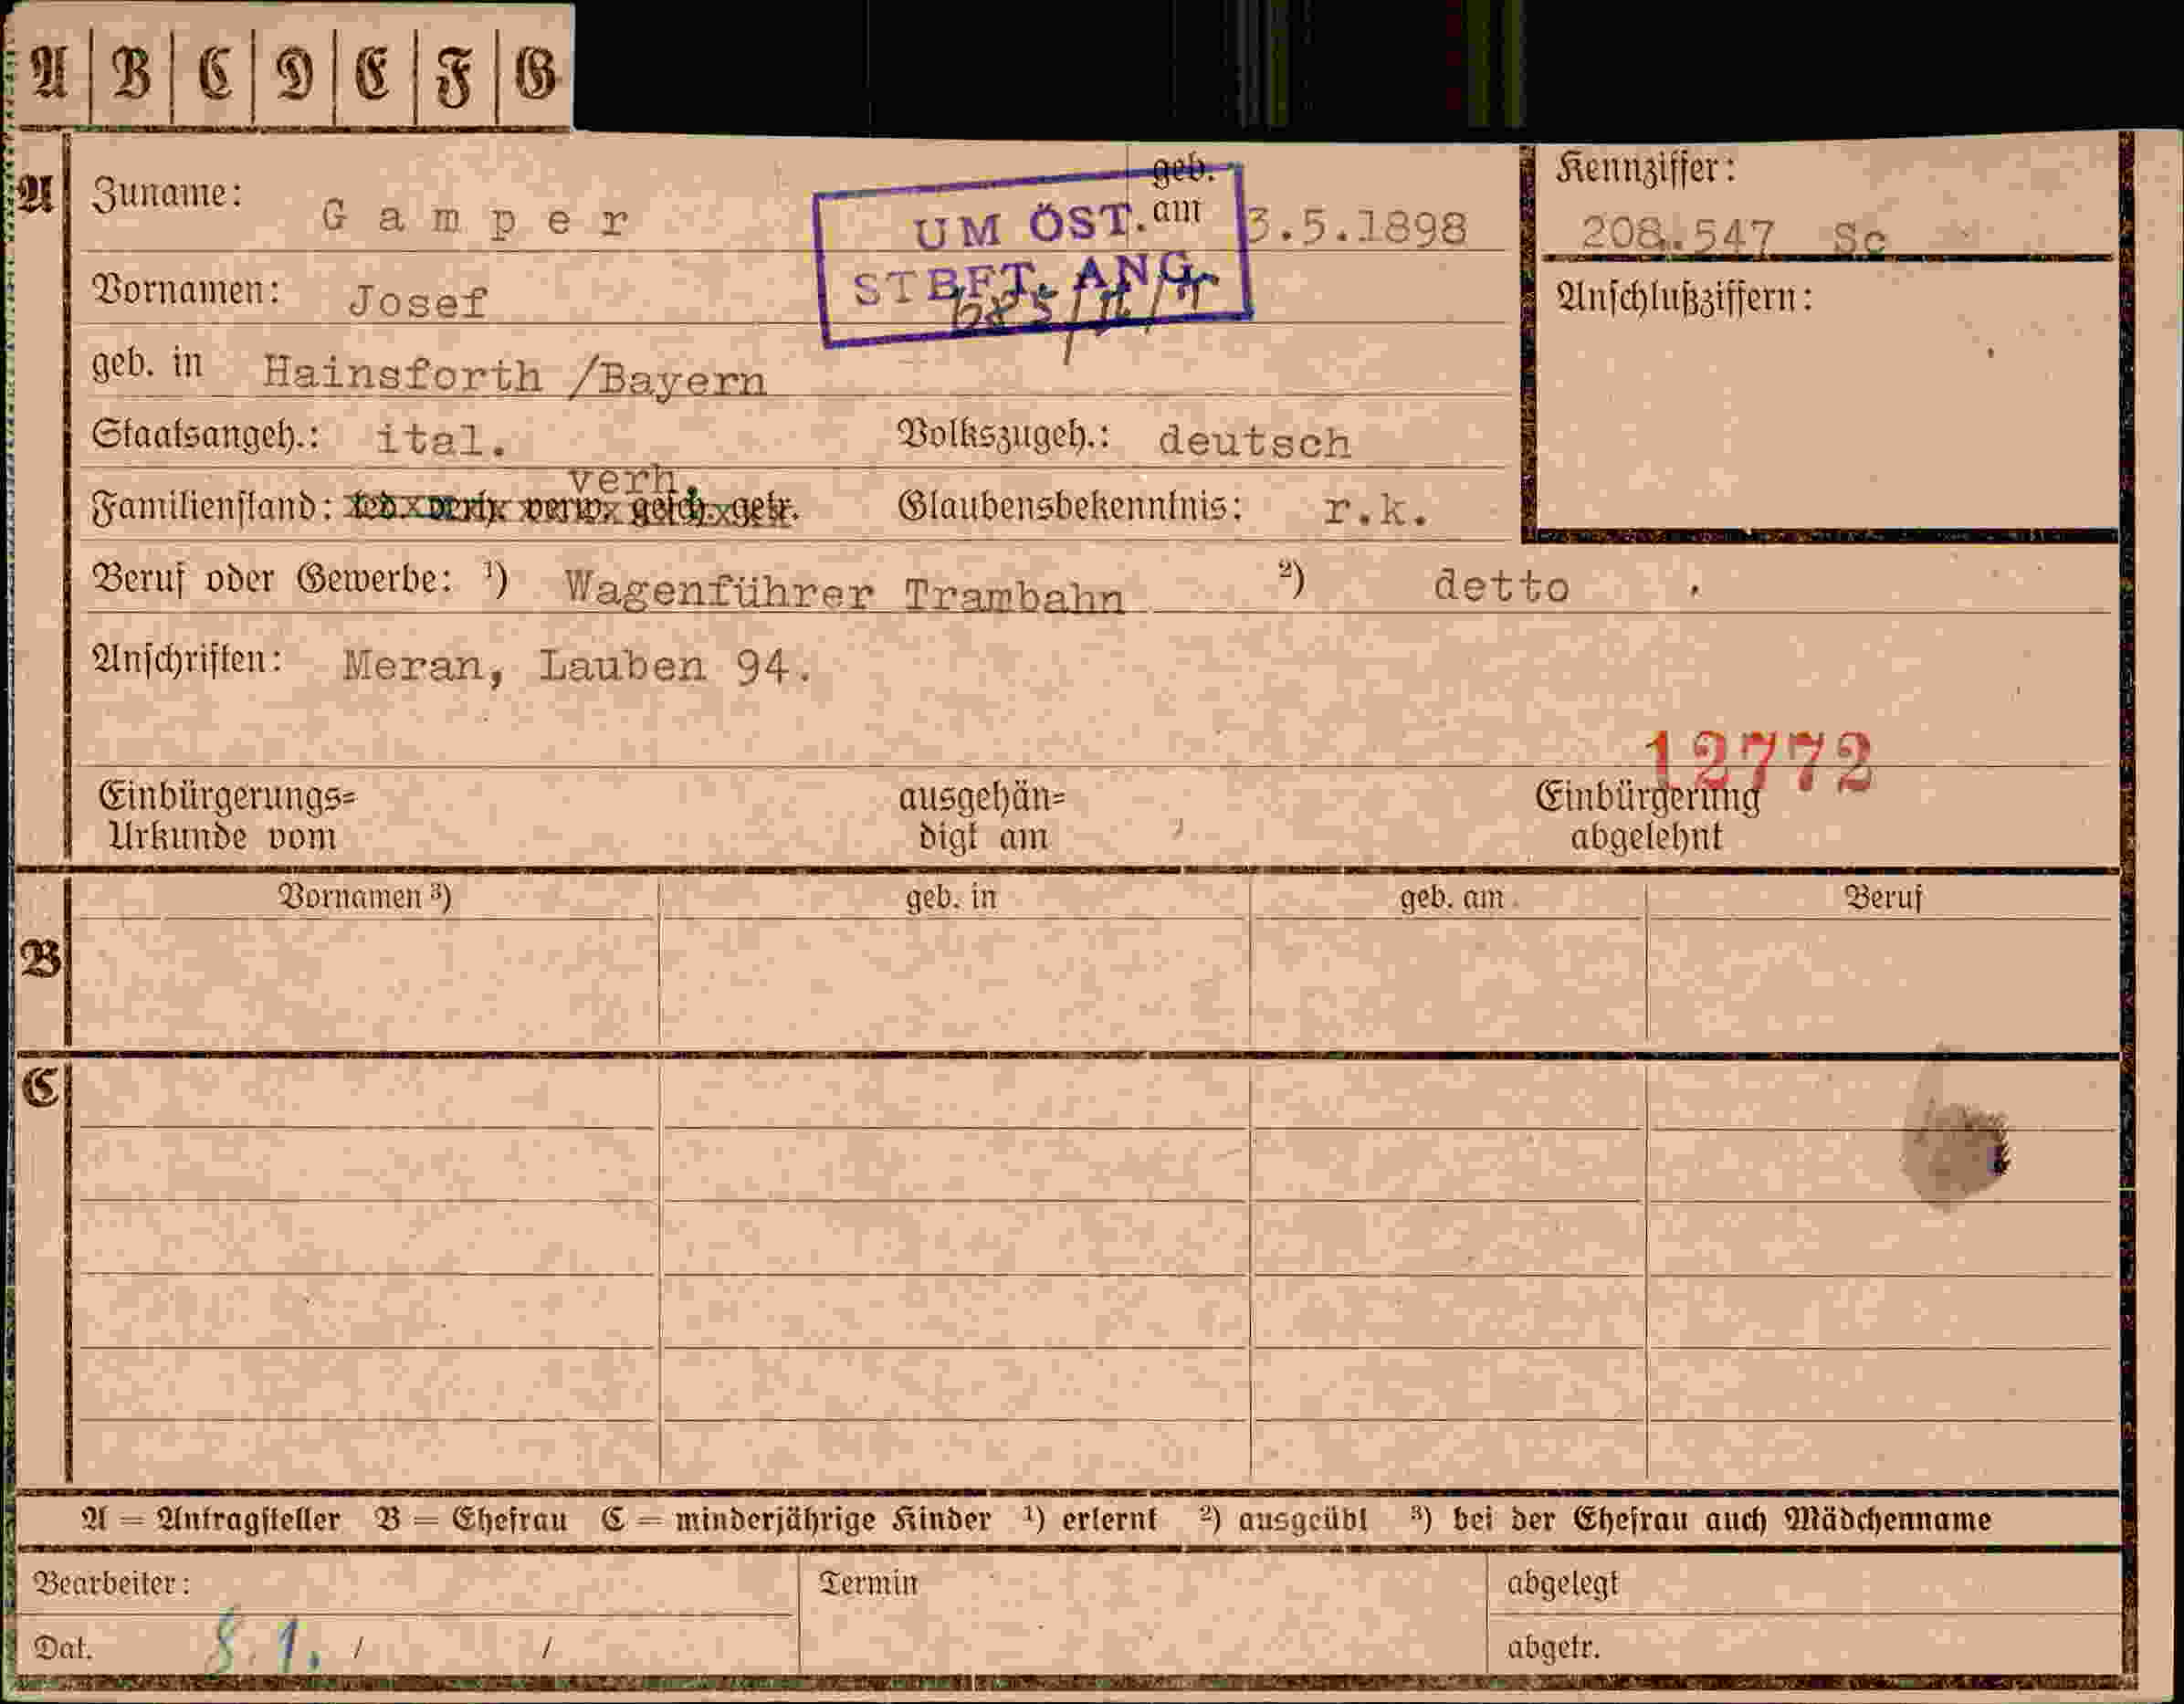 A B C D E F G
A Zuname: Gamper geb. am 3.5.1898 Kennziffer:
208.547 Sc
UM ÖST.
STBFT. ANG.
Vornamen: Josef Anschlußziffern:
geb. in Hainsforth /Bayern
Staatsangeh.: ital. Volkszugeh.: deutsch
verh.
Familienstand: led. verh. verw. gesch. getr. Glaubensbekenntnis: r.k.
Beruf oder Gewerbe: ¹) Wagenführer Trambahn ²) detto
Anschriften: Meran, Lauben 94.
12772
Einbürgerungs= ausgehän= Einbürgerung
Urkunde vom digt am abgelehnt
Vornamen ³) geb. in geb. am Beruf
B
C
A = Antragsteller B = Ehefrau C = minderjährige Kinder ¹) erlernt ²) ausgeübt ³) bei der Ehefrau auch Mädchenname
Bearbeiter: Termin abgelegt
Dat. 8.1. / / abgetr.